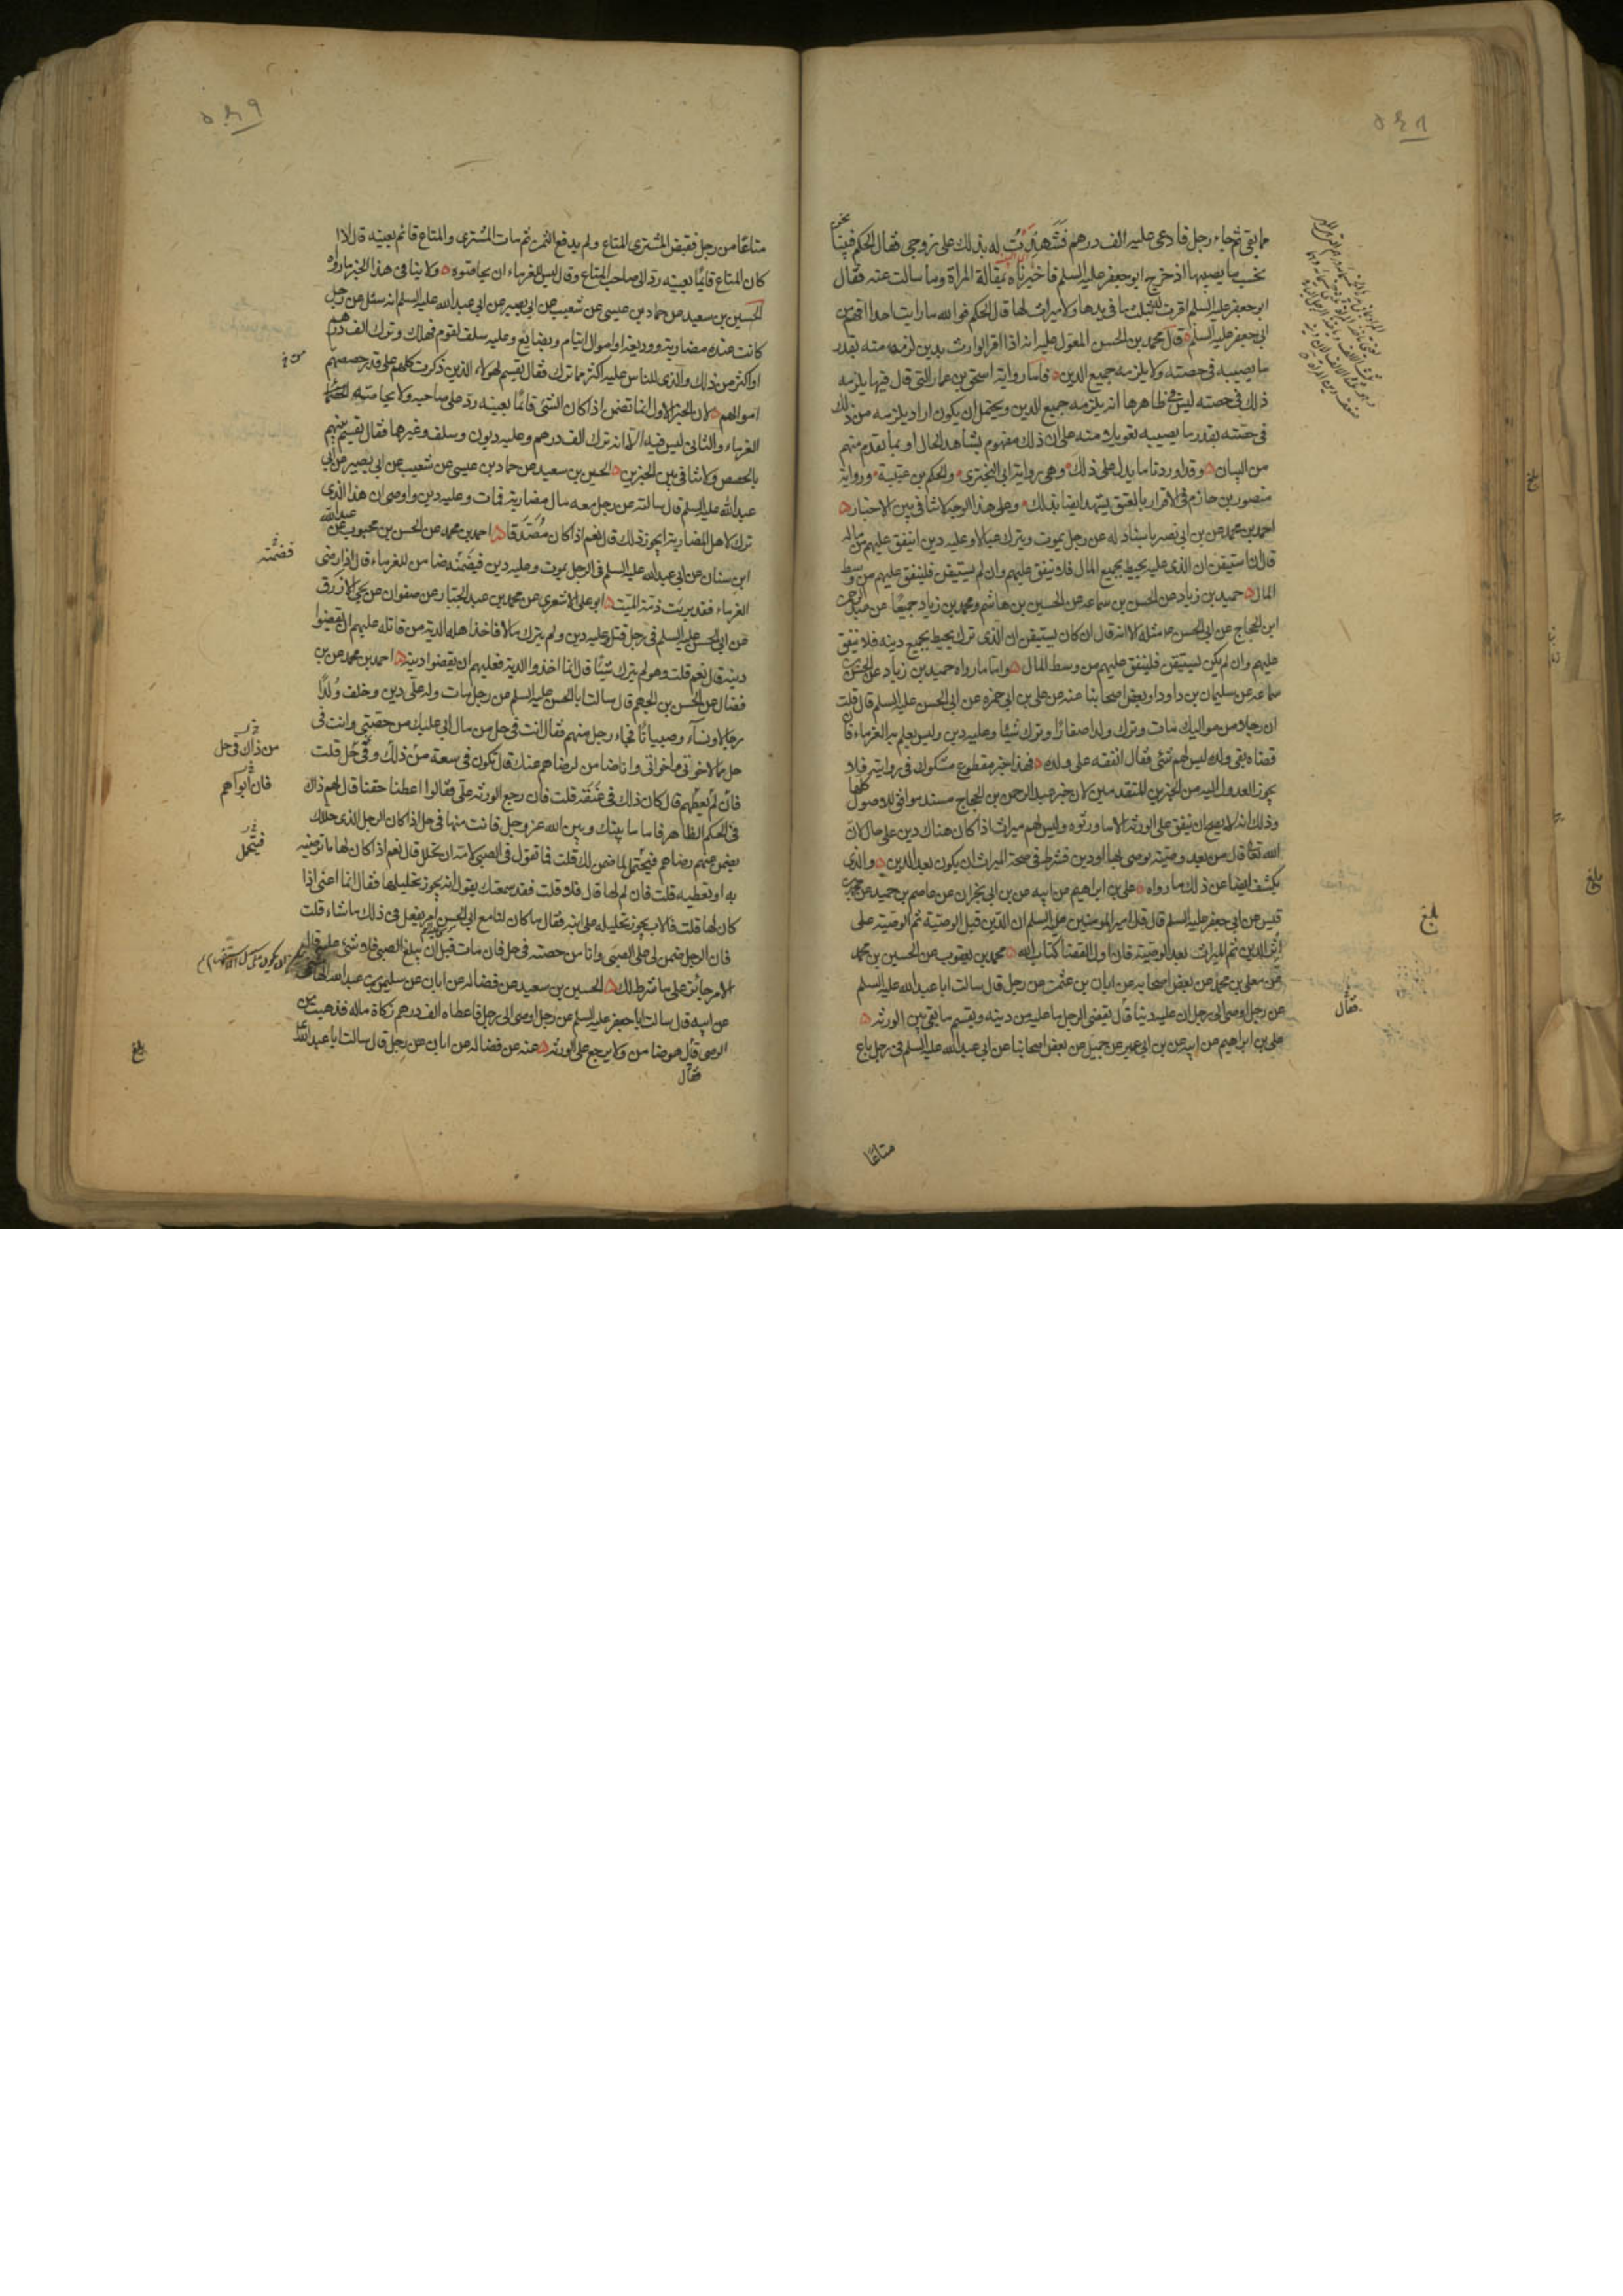 ما بقي ثم جاء رجل فادعى عليه الف درهم فشهدت له بذلك على زوجي فقال الحكم فبينا نحن
نحسب ما يصيبها اذ خرج ابو جعفر عليه السلم فاخبرناه بمقالة المراة وما سالت عنه فقال
ابو جعفر عليه السلم اقرت بثلث ما في يدها ولا ميراث لها قال الحكم فو الله ما رايت احدا افهم من
ابي جعفر عليه السلم قال محمد بن الحسن المعول عليه انه اذا اقر الوارث بدين لزمه منه بقدر
ما يصيبه في حصته ولا يلزمه جميع الدين فاما رواية اسحق بن عمار التي قال فيها يلزمه
ذلك في حصته ليس في ظاهرها انه يلزمه جميع الدين ويحتمل ان يكون اراد يلزمه من ذلك
في حصته بقدر ما يصيبه تعويلا منه على ان ذلك مفهوم بشاهد الحال او بما تقدم منهم
من البيان وقد اوردنا ما يدل على ذلك وهي رواية ابي البختري والحكم بن عتيبة ورواية
منصور بن حازم في الاقرار بالعتق يشهد ايضا بذلك وعلى هذا الوجه لا تنافي بين الاخبار
احمد بن محمد عن بن ابي نصر باسناد له عن رجل يموت ويترك عيالا وعليه دين اينفق عليهم من ماله
قال ان استيقن ان الذي عليه يحيط بجميع المال فلا ينفق عليهم وان لم يستيقن فلينفق عليهم من وسط
المال حميد بن زياد عن الحسن بن سماعه عن الحسين بن هاشم ومحمد بن زياد جميعا عن عبد الرحمن
ابن الحجاج عن ابي الحسن مثله الا انه قال ان كان يستيقن ان الذي ترك يحيط بجميع دينه فلا ينفق
عليهم وان لم يكن يستيقن فلينفق عليهم من وسط المال واما ما رواه حميد بن زياد عن الحسن بن
سماعه عن سليمان بن داود او بعض اصحابنا عنه عن علي بن ابي حمزه عن ابي الحسن عليه السلم قال قلت
ان رجلا من مواليك مات وترك ولدا صغارا وترك شيئا وعليه دين وليس يعلم به الغرماء فان
قضاه بقي ولده ليس لهم شئ فقال انفقه على ولده فهذا خبر مقطوع مشكوك في روايته فلا
يجوز العدول اليه من الخبرين المتقدمين لان خبر عبد الرحمن بن الحجاج مسند موافق للاصول كلها
وذلك انه لا يصح ان ينفق على الورثه الا ما ورثوه وليس لهم ميراث اذا كان هناك دين على حال لان
الله تعالى قال من بعد وصيته يوصى بها او دين فشرط في صحة الميراث ان يكون بعد الدين والذي
يكشف ايضا عن ذلك ما رواه علي بن ابراهيم عن ابيه عن بن ابي نجران عن عاصم بن حميد عن محمد بن
قيس عن ابي جعفر عليه السلم قال قال امير المومنين عليه السلم ان الدين قبل الوصية ثم الوصية على
اثر الدين ثم الميراث بعد الوصية فان اول القضا كتاب الله محمد بن يعقوب عن الحسين بن محمد
عن معلى بن محمد عن بعض اصحابه عن ابان بن عثمن عن رجل قال سالت ابا عبد الله عليه السلم
عن رجل اوصى الى رجل ان عليه دينا قال يقضي الرجل ما عليه من دينه ويقسم ما بقي بين الورثه
علي بن ابراهيم عن ابيه عن بن ابي عمير عن جميل عن بعض اصحابنا عن ابي عبد الله عليه السلم في رجل باع
متاعًا
بلغ
فقال
متاعًا من رجل فقبض المشتري المتاع ولم يدفع الثمن ثم مات المشتري والمتاع قائم بعينه قال اذا
كان المتاع قائمًا بعينه رد الى صاحب المتاع وقال ليس للغرماء ان يحاصوه ولا ينافي هذا الخبر ما رواه
الحسين بن سعيد عن حماد بن عيسى عن شعيب عن ابي بصير عن ابي عبد الله عليه السلم انه سئل عن رجل
كانت عنده مضاربة ووديعة واموال ايتام وبضايع وعليه سلف لقوم فهلك وترك الف درهم
او اكثر من ذلك والذي للناس عليه اكثر مما ترك فقال يقسم لهولاء الذين ذكرت كلهم على قدر حصصهم
اموالهم لان الخبر الاول انما تضمن اذا كان الشئ قائمًا بعينه رد على صاحبه ولا يحاصه
الغرماء والثاني ليس فيه الا انه ترك الف درهم وعليه ديون وسلف وغيرها فقال تقسم بينهم
بالحصص ولا تنافي بين الخبرين الحسين بن سعيد عن حماد بن عيسى عن شعيب عن ابي بصير عن ابي
عبد الله عليه السلم قال سالته عن رجل معه مال مضاربة فمات وعليه دين واوصى ان هذا الذي
ترك لاهل المضاربة ايجوز ذلك قال نعم اذا كان مصدقا احمد بن محمد عن الحسن بن محبوب عن عبد الله
ابن سنان عن ابي عبد الله عليه السلم في الرجل يموت وعليه دين فيضمنه ضامن للغرماء قال اذا رضي
الغرماء فقد بريت ذمة الميت ابو علي الاشعري عن محمد بن عبد الجبار عن صفوان عن يحيى الازرق
عن ابي الحسن عليه السلم في رجل قتل وعليه دين ولم يترك مالا فاخذ اهله الدية من قاتله عليهم ان يقضوا
دينه قال نعم قلت وهو لم يترك شيئًا قال انما اخذوا الدية فعليهم ان يقضوا دينه احمد بن محمد عن بن
فضال عن الحسن بن الجهم قال سالت ابا الحسن عليه السلم عن رجل مات وله علي دين وخلف ولدًا
رجالا ونساء وصبيانًا فجاء رجل منهم فقال انت في حل من مال ابي عليك من حصتي وانت في
حل مما لاخوتي واخواتي وانا ضامن لرضاهم عنك قال تكون في سعة من ذلك وفي حل قلت
فان لم يعطهم قال كان ذلك في عنقه قلت فان رجع الورثه علي فقالوا اعطنا حقنا قال لهم ذاك
في الحكم الظاهر فاما ما بينك وبين الله عز وجل فانت منها في حل اذا كان الرجل الذي حللك
يضمن عنهم رضاهم فيحتمل لما ضمن لك قلت فما تقول في الصبي لامه ان تحلل قال نعم اذا كان لها ما ترضيه
به او تعطيه قلت فان لم لها قال فلا قلت فقد سمعتك تقول انه يجوز تحليلها فقال انما اعني اذا
كان لها قلت فالاب يجوز تحليله على ابنه فقال ما كان لنا مع ابي الحسن امر يفعل في ذلك ما شاء قلت
فان الرجل ضمن لي على الصبي وانا من حصته في حل فان مات قبل ان يبلغ الصبي فلا شئ عليه قال
الامر جائز على ما شرط لك الحسين بن سعيد عن فضاله عن ابان عن سليمن بن عبد الله الهاشمي
عن ابيه قال سالت ابا جعفر عليه السلم عن رجل اوصى الى رجل فاعطاه الف درهم زكاة ماله فذهبت من
الوصي قال هو ضامن ولا يرجع على الورثه عنه عن فضاله عن ابان عن رجل قال سالت ابا عبد الله
فقال
فضمنه
من ذاك في حل
فان ابواهم
فيتحمل
بلغ